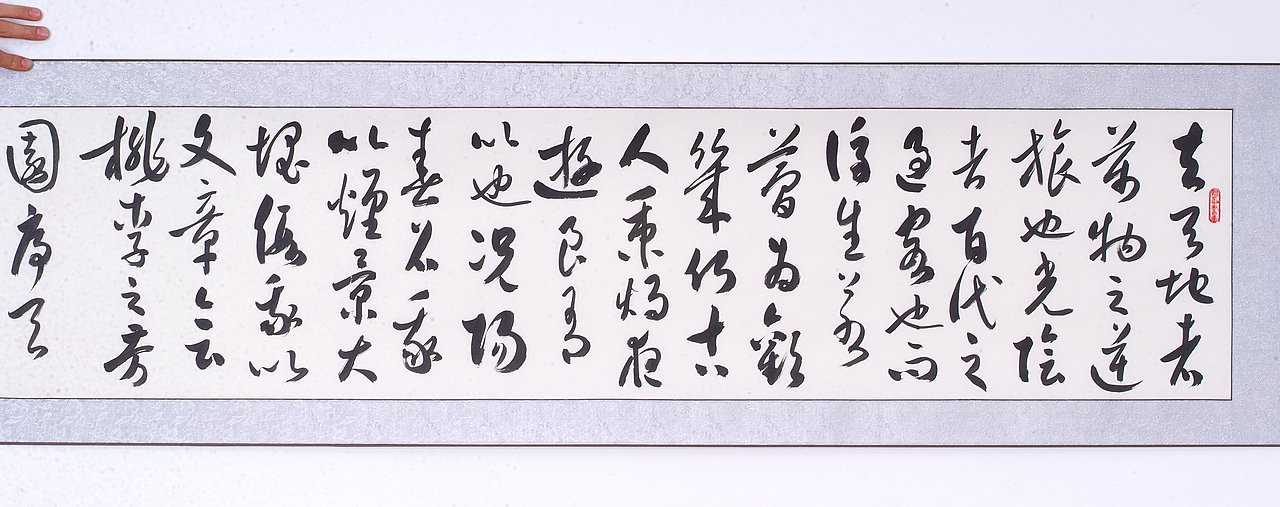 夫天地者
萬物之逆
旅也光陰
者百代之
過客也而
浮生若
夢為歡
幾何古
人秉燭夜
遊良有
以也況陽
春召我
以煙景大
塊假我以
文章會
桃李之芳
園序天